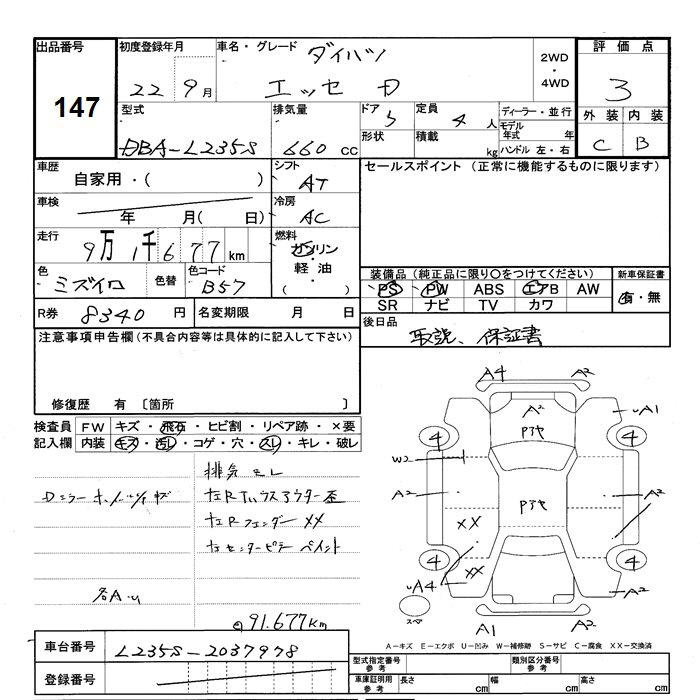 出品番号
147
初度登録年月
22年 9月
車名・グレード
ダイハツ
エッセ D
2WD
・
4WD
評価点
3
外装 内装
C B
型式
DBA-L235S
排気量
660 cc
ドア 5
形状
定員 4 人
積載 kg
ディーラー・並行
モデル年式 年
ハンドル 左・右
車歴
自家用・( )
シフト
AT
車検
年 月( 日)
冷房
AC
走行
9万1千677km
燃料
ガソリン
・
軽油
・
( )
色
ミズイロ
色替
色コード
B57
R券 8340円
名変期限 月 日
セールスポイント (正常に機能するものに限ります)
装備品 (純正品に限り○をつけてください)
PS PW ABS エアB AW
SR ナビ TV カワ
新車保証書
有・無
後日品
取説、保証書
注意事項申告欄(不具合内容等は具体的に記入して下さい)
修復歴 有 〔箇所 〕
検査員記入欄
FW キズ・飛石・ヒビ割・リペア跡・×要
内装 キズ・汚レ・コゲ・穴・スレ・キレ・破レ
排気モレ
左Rフェンダー XX
左センターピラー ペイント
各A.u
91.677km
車台番号 L235S-2037978
登録番号
A4 A2
A2
Pアセ
uA1
4 4
W2
A2
Pアセ
A2
XX
XX
4 4
uA4
A2
スペア
A1 A2
A-キズ E-エクボ U-凹み W-補修跡 S-サビ C-腐食 XX-交換済
型式指定番号 参考
類別区分番号 参考
車庫証明用 参考
長さ cm 幅 cm 高さ cm